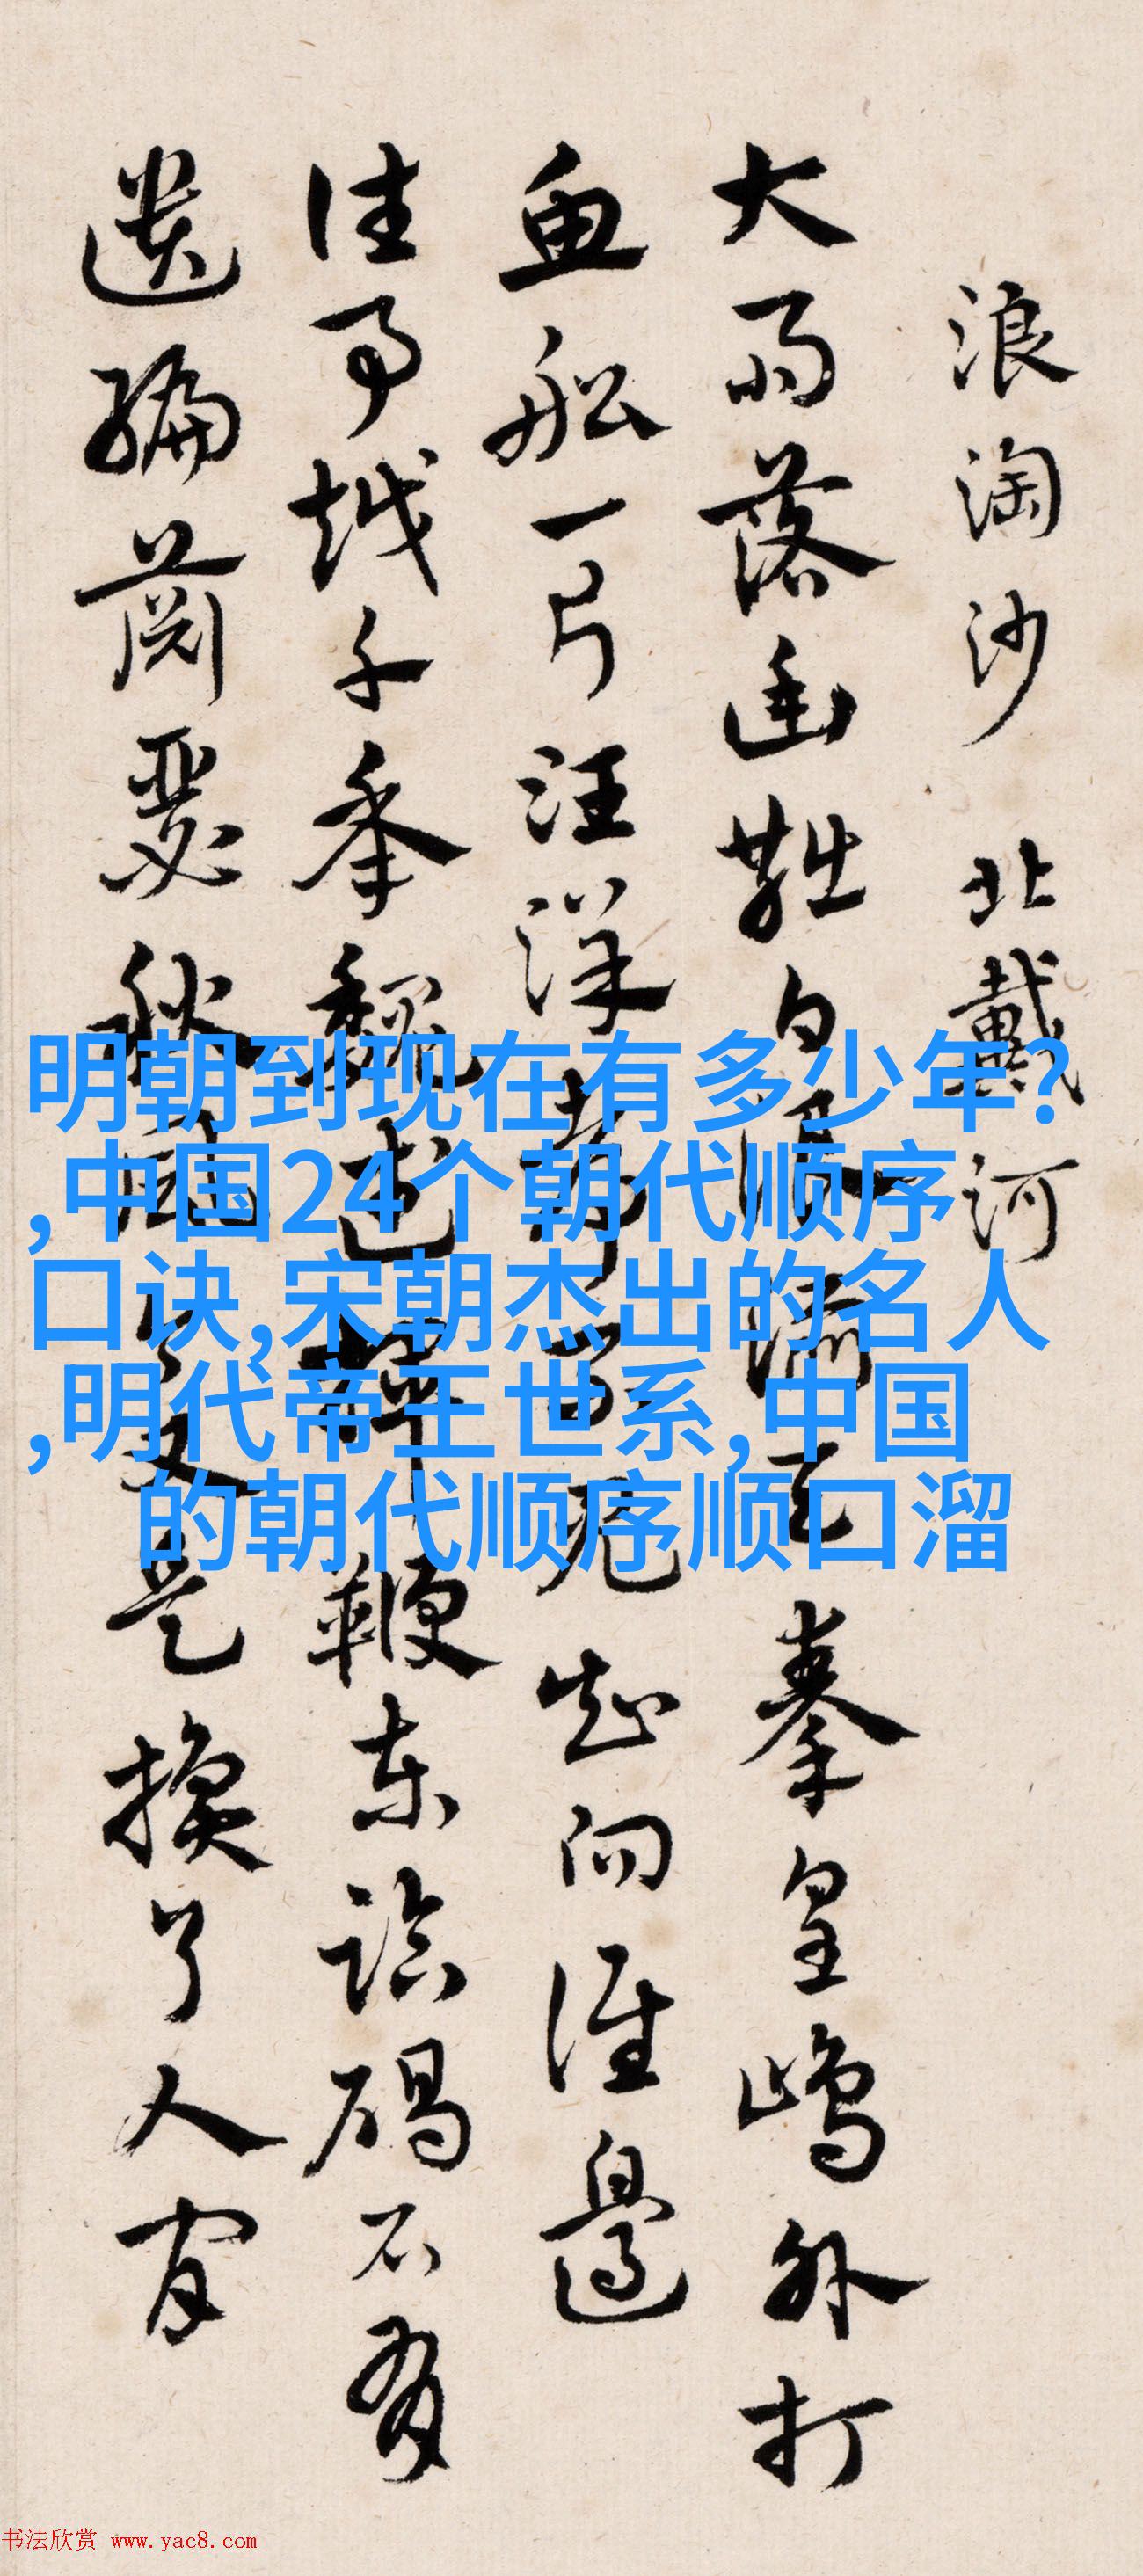 浪淘沙 北戴河
大雨落幽燕白浪滔天秦皇嶋外打
魚船一片汪洋都不見知向誰邊
往事越千年魏武揮鞭東臨碣石有
遺編蕭瑟秋風今又是換了人間
明朝到现在有多少年?
,中国24个朝代顺序
口诀,宋朝杰出的名人
,明代帝王世系,中国
的朝代顺序顺口溜
书法欣赏 www.yac8.com